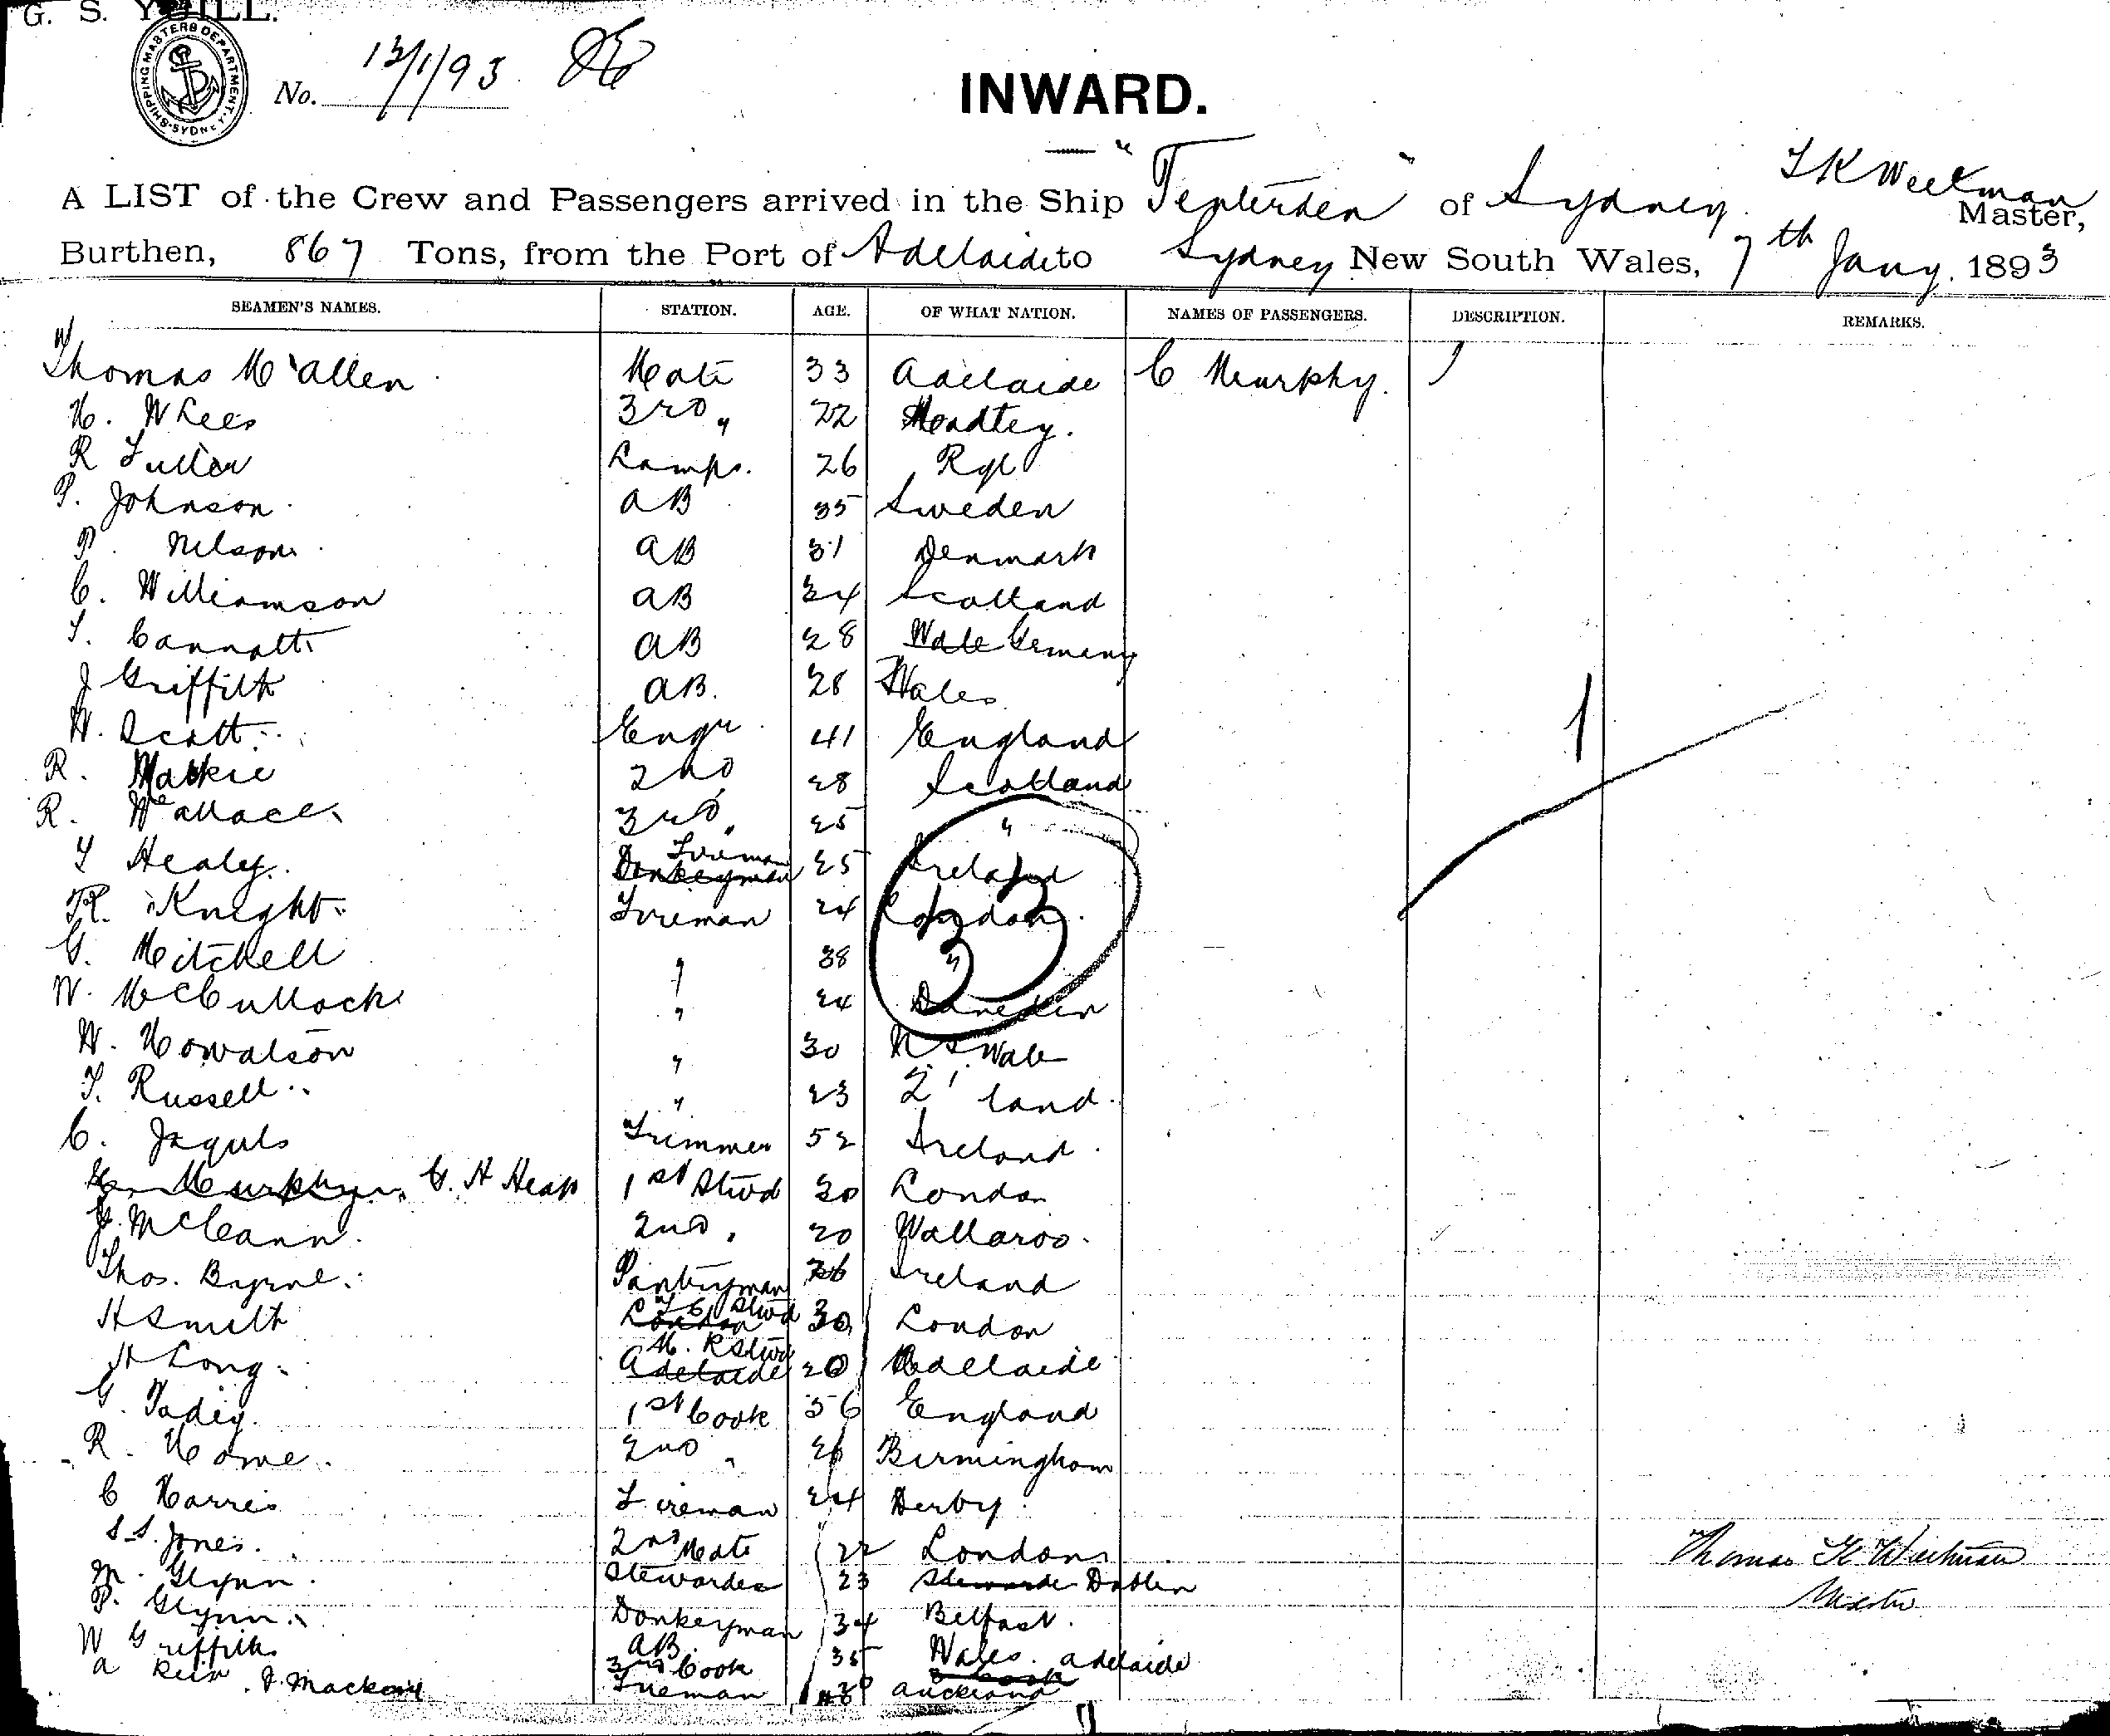 G. S. YUILL.
SHIPPING MASTERS DEPARTMENT. SYDNEY
No. 13/1/93
INWARD.
T K Weekman
A LIST of the Crew and Passengers arrived in the Ship "Tenterden" of Sydney Master,
Burthen, 867 Tons, from the Port of Adelaide to Sydney New South Wales, 7th Jany. 1893
SEAMEN'S NAMES. STATION. AGE. OF WHAT NATION. NAMES OF PASSENGERS. DESCRIPTION. REMARKS.
Thomas McAllen Mate 33 Adelaide C Murphy. 1
H. W Lees 3rd " 22
R Fuller Lamps. 26
P. Johnson AB 35 Sweden
P. Nelson AB 31 Denmark
C. Williamson AB 34 Scotland
T. AB 28 Wale Germany
J Griffith AB. 28 Wales
W. Scott Engr 41 England
R. Mackie 2nd 28 Scotland
R. Wallace 3rd " 25 "
T Healy Donkeyman Fireman 25 Ireland
R. Knight Fireman 24 London
G. Mitchell " 38 "
W. McCullock " 24 Dunedin
W. Howalson " 30 N. S. Wale
T. Russell " 23 Q'land
C. Jaquls Trimmer 52 Ireland
Murphy G. H Heap 1st Stwd 30 London
J. McCann 2nd " 20 Wallaroo
Thos. Byrne Pantryman 36 Ireland
H Smith London Stwd 30 London
H Long Adelaide M. R Stwd 20 Adelaide
G. Tadig 1st Cook 56 England
R. Horne 2nd " 26 Birmingham
C Harris Fireman 24 Derby
S. S. Jones 2nd Mate 22 London
Thomas K Weekman
M. Glynn Stewardes 23 Stewarde Dublin
Master
P. Glynn Donkeyman 34 Belfast
W Griffith AB 35 Wales
A Rein 3rd Cook 20 Adelaide
J. Mackay Fireman Auckland